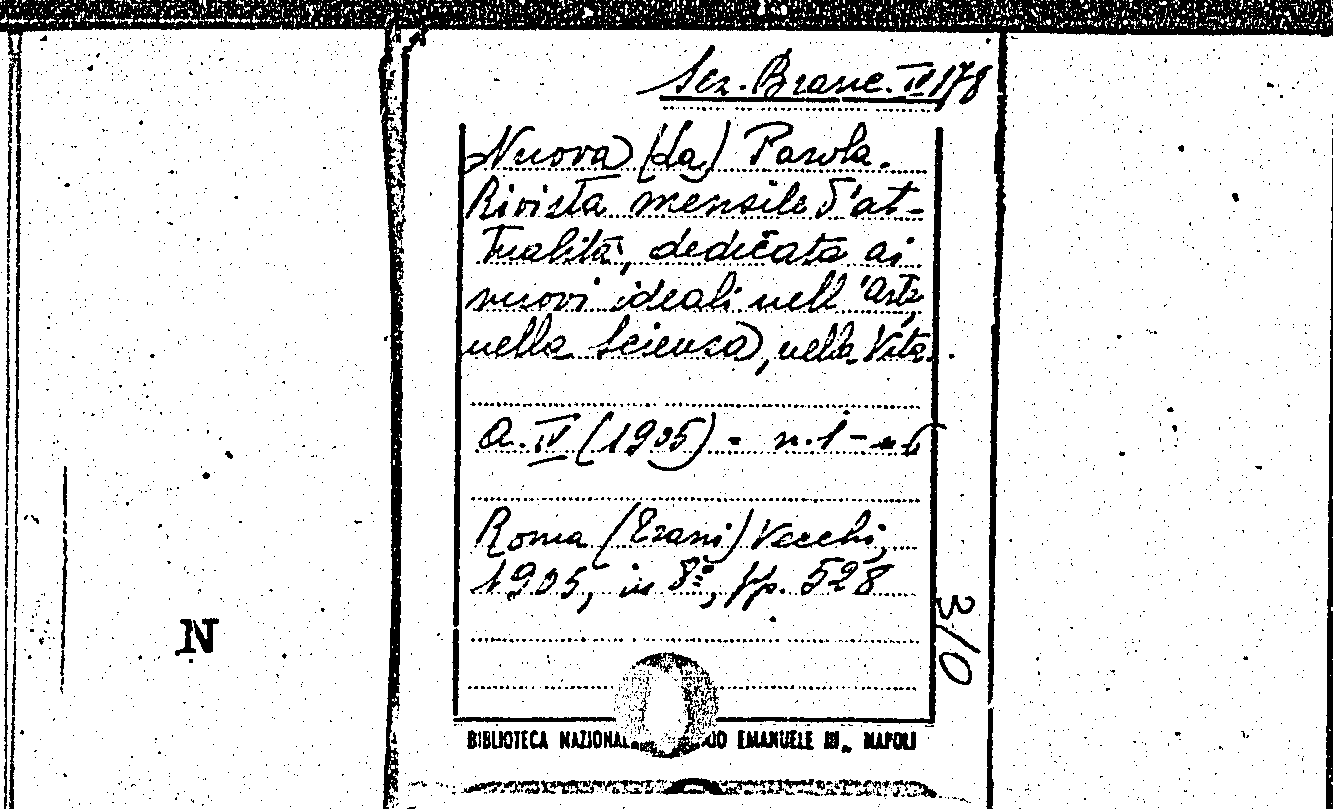 Sez. Branc. IV 178
Nuova (La) Parola.
Rivista mensile d'at-
tualità, dedicata ai
nuovi ideali nell'Arte,
nella Scienza, nella Vita.
A. IV (1905) - n. 1 - n. 6
Roma (Trani) Vecchi,
1905, in 8°, pp. 528
310
N
BIBLIOTECA NAZIONAL EMANUELE III„ NAPOLI